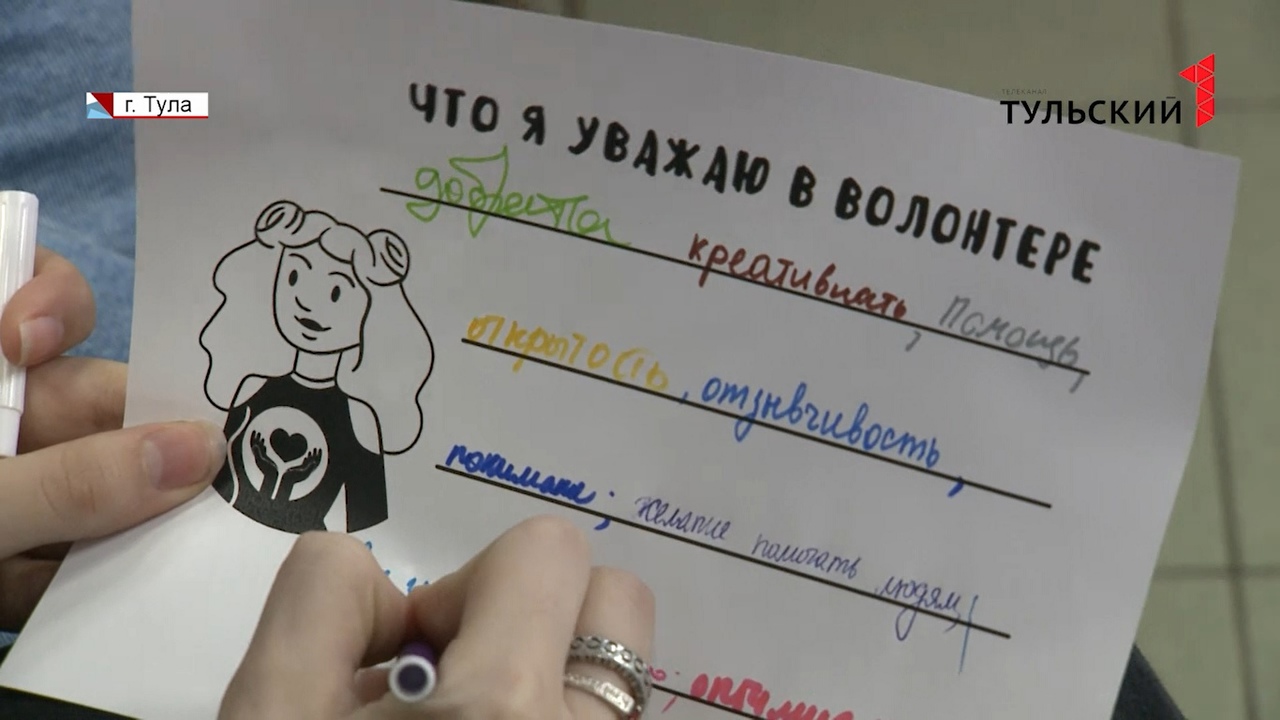 г. Тула
ТЕЛЕКАНАЛ
ТУЛЬСКИЙ 1
ЧТО Я УВАЖАЮ В ВОЛОНТЕРЕ
доброта креативность, помощь,
открытость, отзывчивость,
желание помогать людям,